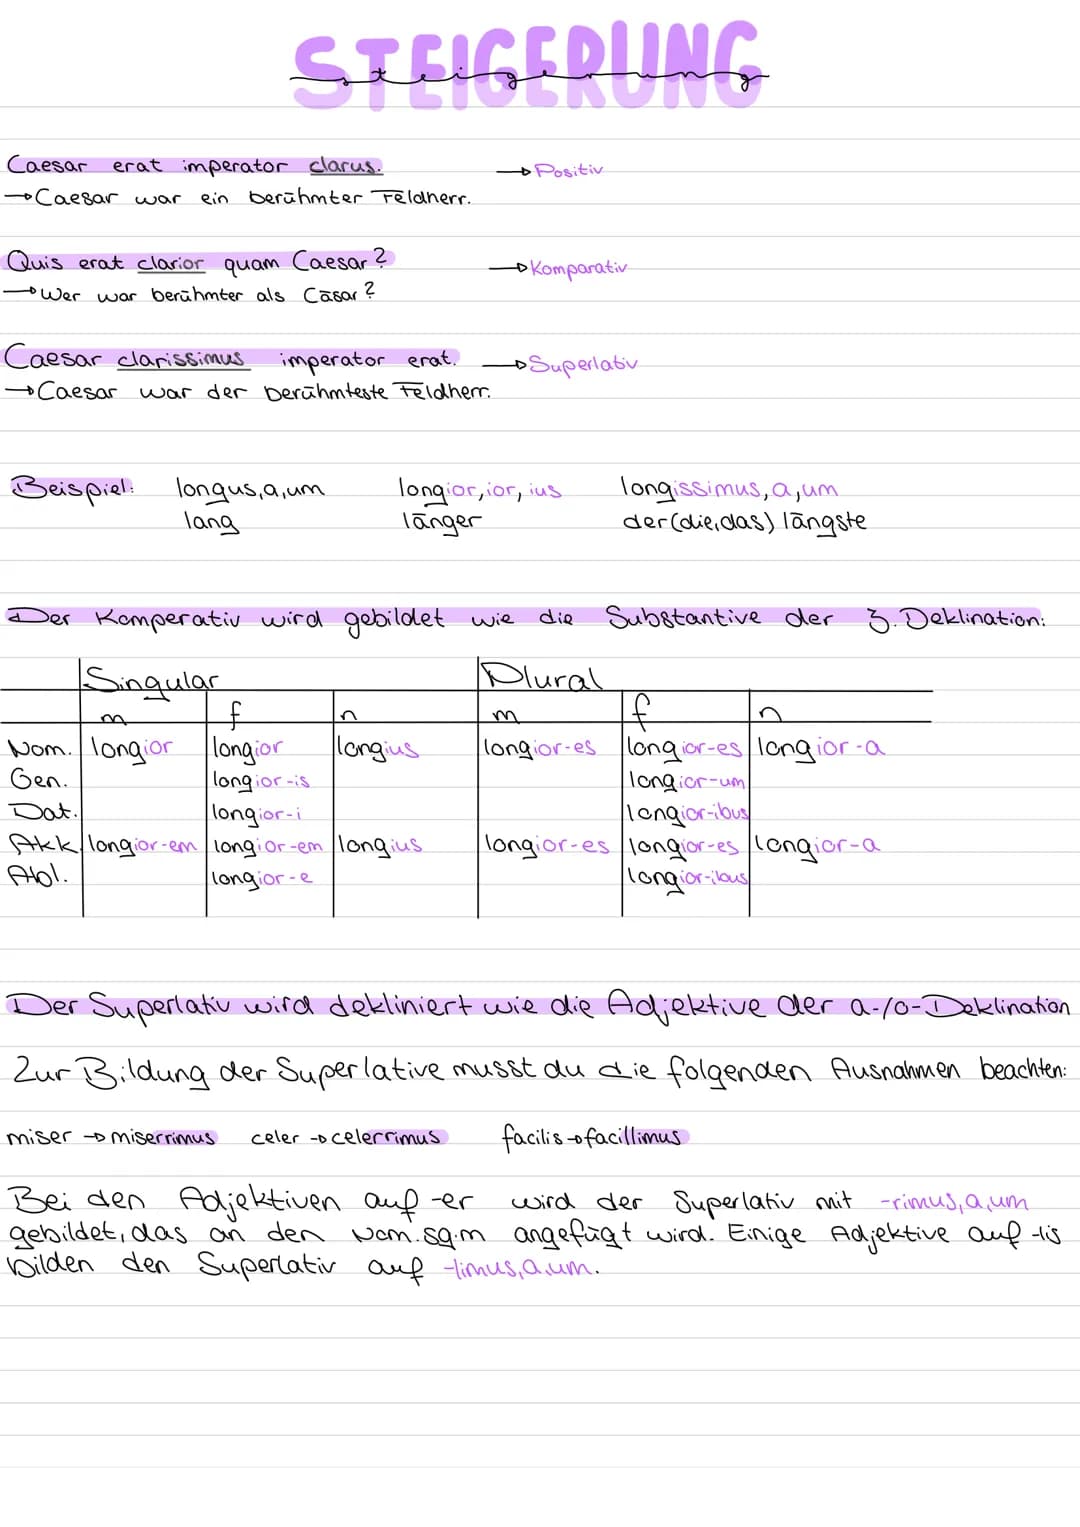 STEIGERUNG
steigerung
Caesar erat imperator clarus. → Positiv
→ Caesar war ein berühmter Feldherr.
Quis erat clarior quam Caesar? → Komparativ
→ Wer war berühmter als Cäsar?
Caesar clarissimus imperator erat. → Superlativ
→ Caesar war der berühmteste Feldherr.
Beispiel: longus,a,um longior,ior,ius longissimus,a,um
lang länger der(die,das) längste
Der Komperativ wird gebildet wie die Substantive der 3. Deklination:
Singular Plural
m f n m f n
Nom. longior longior longius longior-es longior-es longior-a
Gen. longior-is longior-um
Dat. longior-i longior-ibus
Akk longior-em longior-em longius longior-es longior-es longior-a
Abl. longior-e longior-ibus
Der Superlativ wird dekliniert wie die Adjektive der a-/o-Deklination
Zur Bildung der Superlative musst du die folgenden Ausnahmen beachten:
miser → miserrimus celer → celerrimus facilis → facillimus
Bei den Adjektiven auf -er wird der Superlativ mit -rimus,a,um
gebildet, das an den Nom.sg.m angefügt wird. Einige Adjektive auf -lis
bilden den Superlativ auf -limus,a,um.